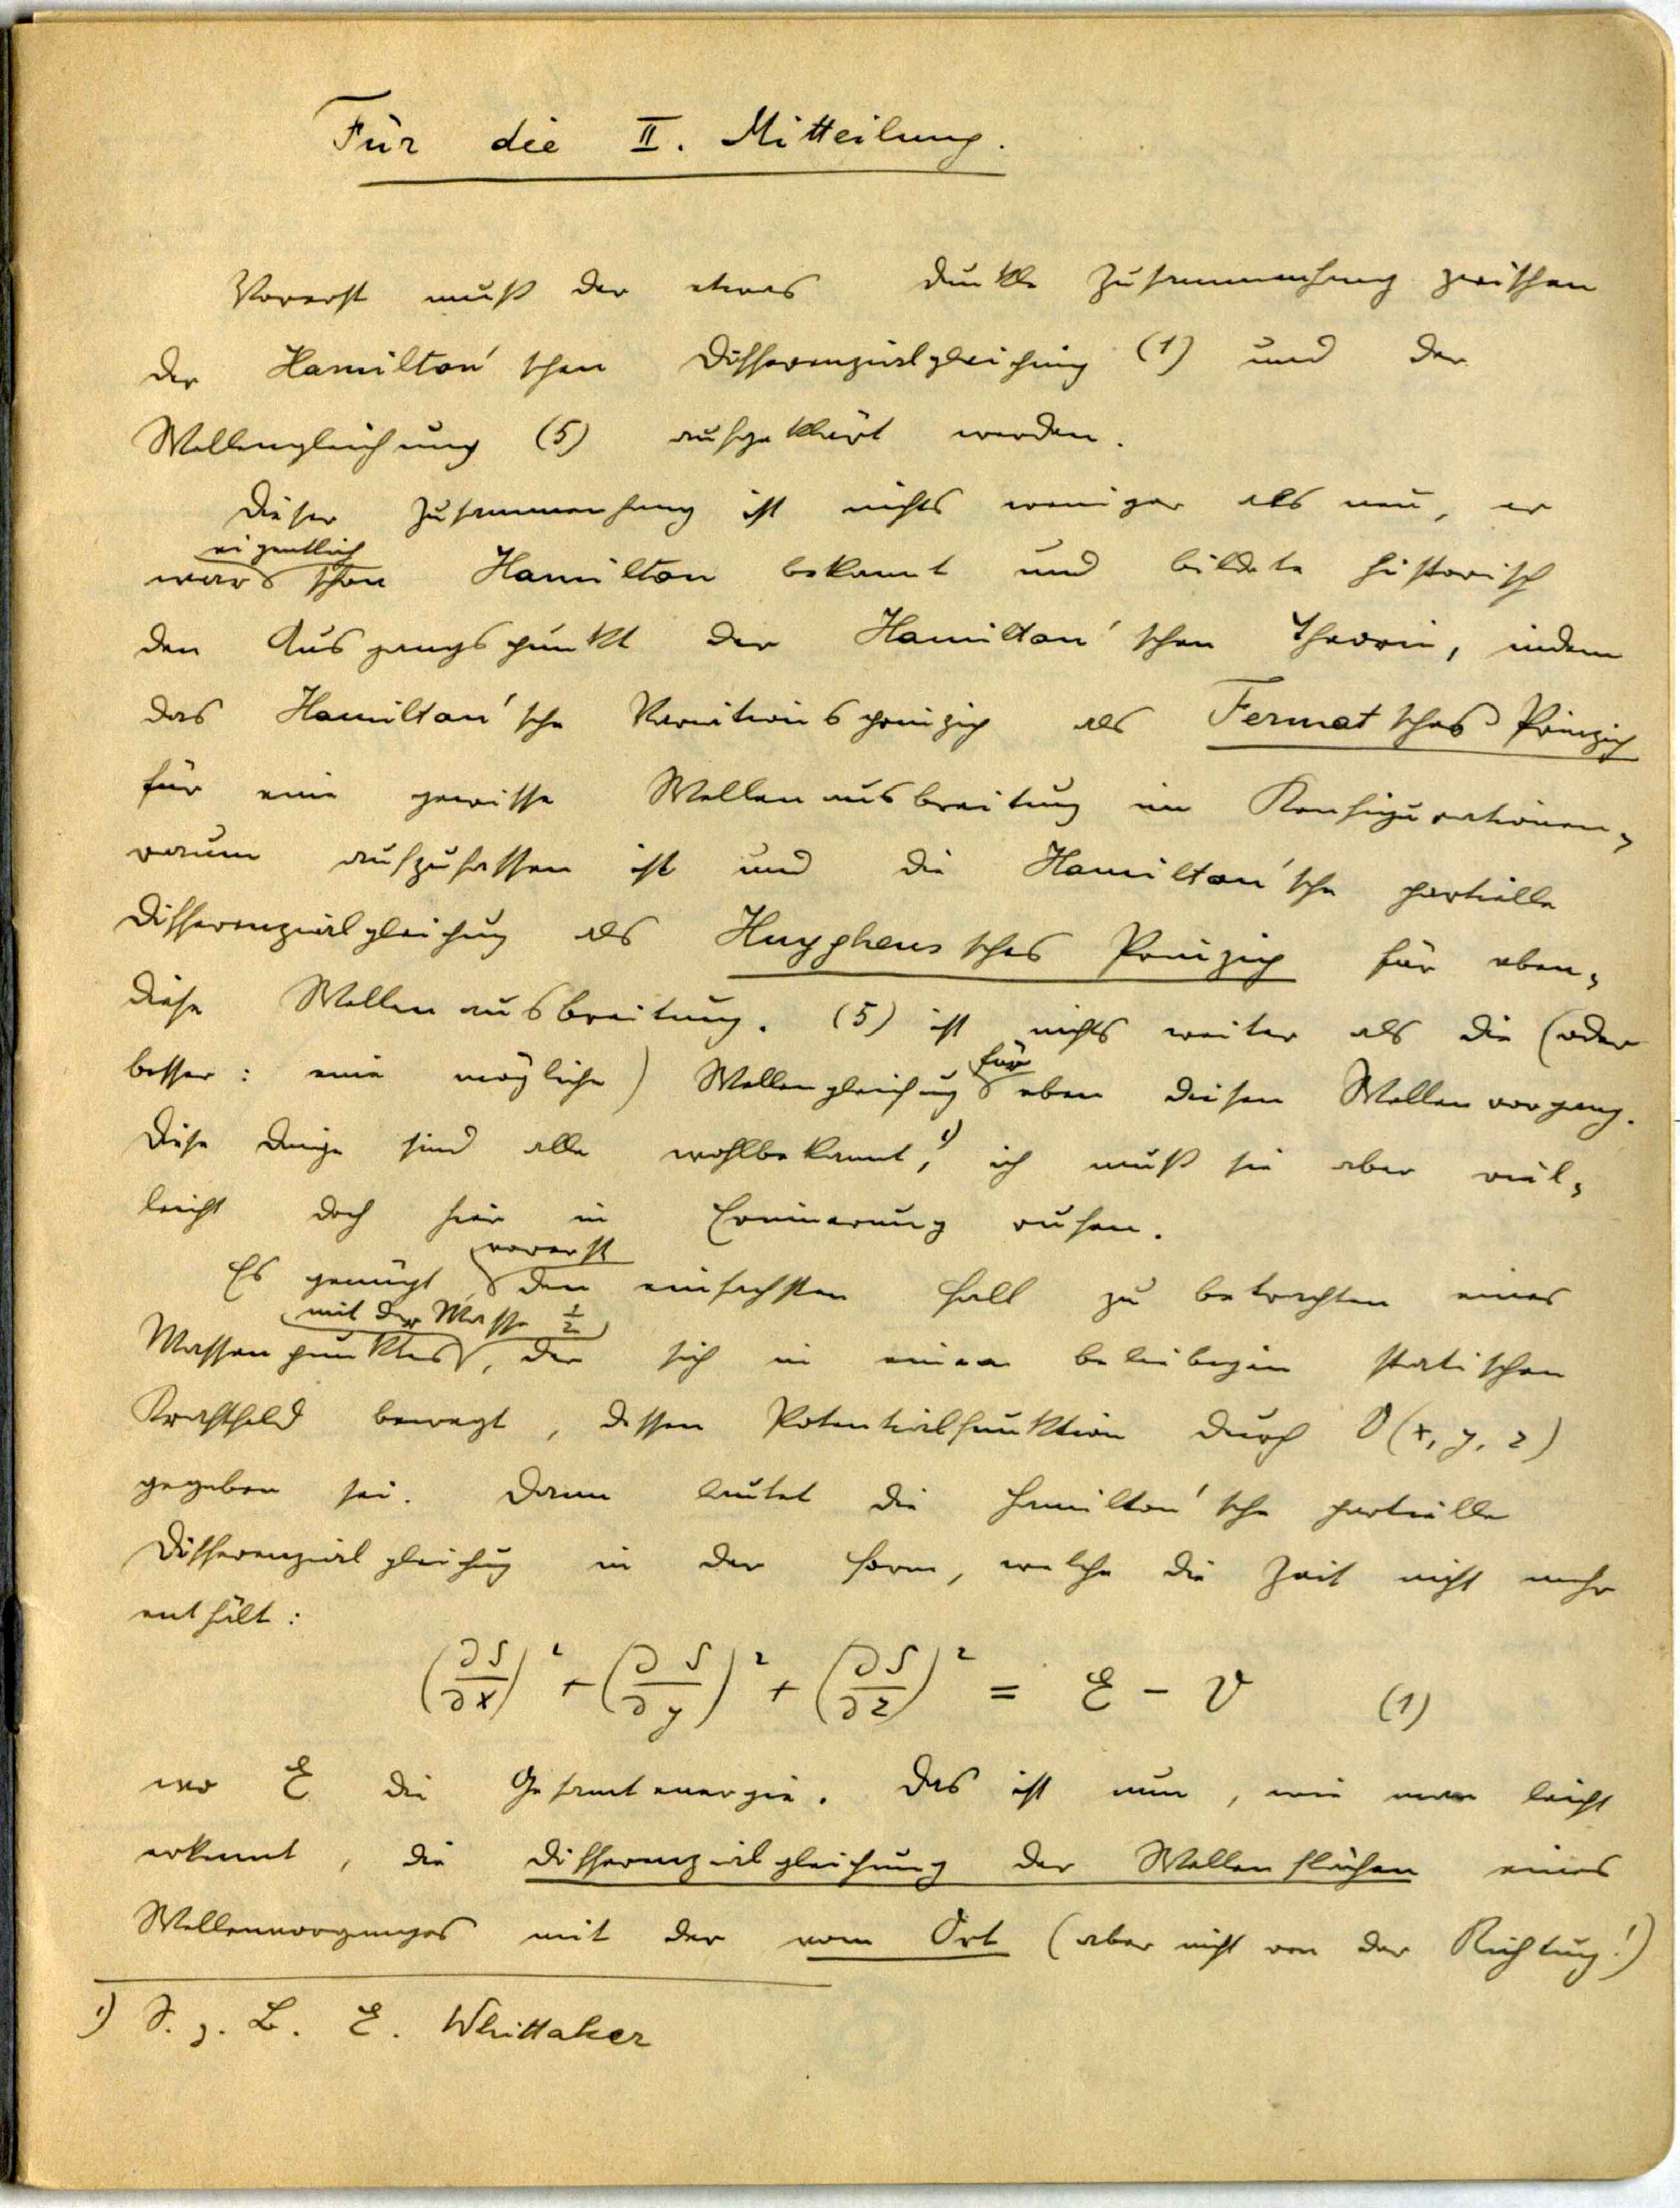 Für die II. Mitteilung.
Vorerst muß der etwas dunkle Zusammenhang zwischen
der Hamilton'schen Differenzialgleichung (1) und der
Wellengleichung (5) aufgeklärt werden.
Dieser Zusammenhang ist nichts weniger als neu, er
eigentlich
war schon Hamilton bekannt und bildete historisch
den Ausgangspunkt der Hamilton'schen Theorie, indem
das Hamilton'sche Variationsprinzip als Fermatsches Prinzip
für eine gewisse Wellenausbreitung im Konfigurationen-
raum aufzufassen ist und die Hamilton'sche partielle
Differenzialgleichung als Huyghenssches Prinzip für eben-
diese Wellenausbreitung. (5) ist nichts weiter als die (oder
besser: eine mögliche) Wellengleichung für eben diesen Wellenvorgang.
Diese Dinge sind alle wohlbekannt,¹) ich muß sie aber viel-
leicht doch hier in Erinnerung rufen.
vorerst
Es genügt den einfachsten Fall zu betrachten eines
mit der Masse ½
Massenpunktes, der sich in einem beliebigen statischen
Kraftfeld bewegt, dessen Potentialfunktion durch V(x, y, z)
gegeben sei. Dann lautet die Hamilton'sche partielle
Differenzialgleichung in der Form, welche die Zeit nicht mehr
enthält:
(∂S/∂x)² + (∂S/∂y)² + (∂S/∂z)² = E − V (1)
wo E die Gesamtenergie. Das ist nun, wie man leicht
erkennt, die Differenzialgleichung der Wellenflächen eines
Wellenvorganges mit der vom Ort (aber nicht von der Richtung!)
¹) S. z. B. E. Whittaker